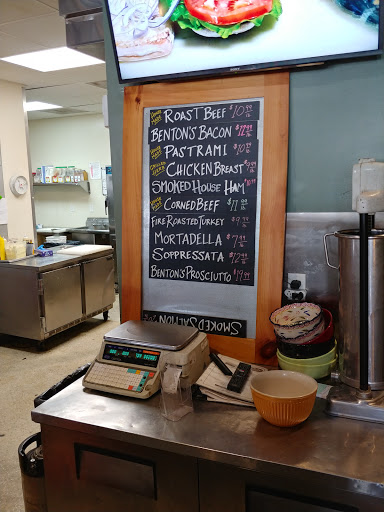 ROAST BEEF $10.99 lb
BENTON'S BACON $11.99 lb
PASTRAMI $10.99
CHICKEN BREAST $9.99 lb
SMOKED HOUSE HAM
CORNED BEEF $11.99 lb
FIRE ROASTED TURKEY
MORTADELLA $7.99 lb
SOPPRESSATA $12.99 lb
BENTON'S PROSCIUTTO $19.99 lb
SMOKED SALMON